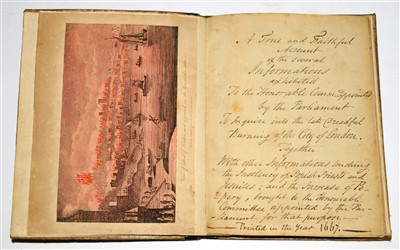 A True and Faithful
Account
of the several
Informations
exhibited
To the Honorable Comm. appointed
by the Parliament
To Inquire into the late Dreadful
Burning of the City of London.
Together
With other Informations touching
the Insolency of Popish Priests and
Jesuites; and the Increase of Po-
pery, brought to the Honourable
Committee appointed by the Par-
liament for that purpose
Printed in the Year 1667.